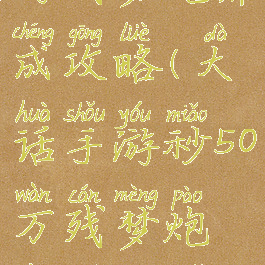 chéng gōng lüè dà
成攻略(大
huà shǒu yóu miǎo
话手游秒50
wàn cán mèng pào
万残梦炮